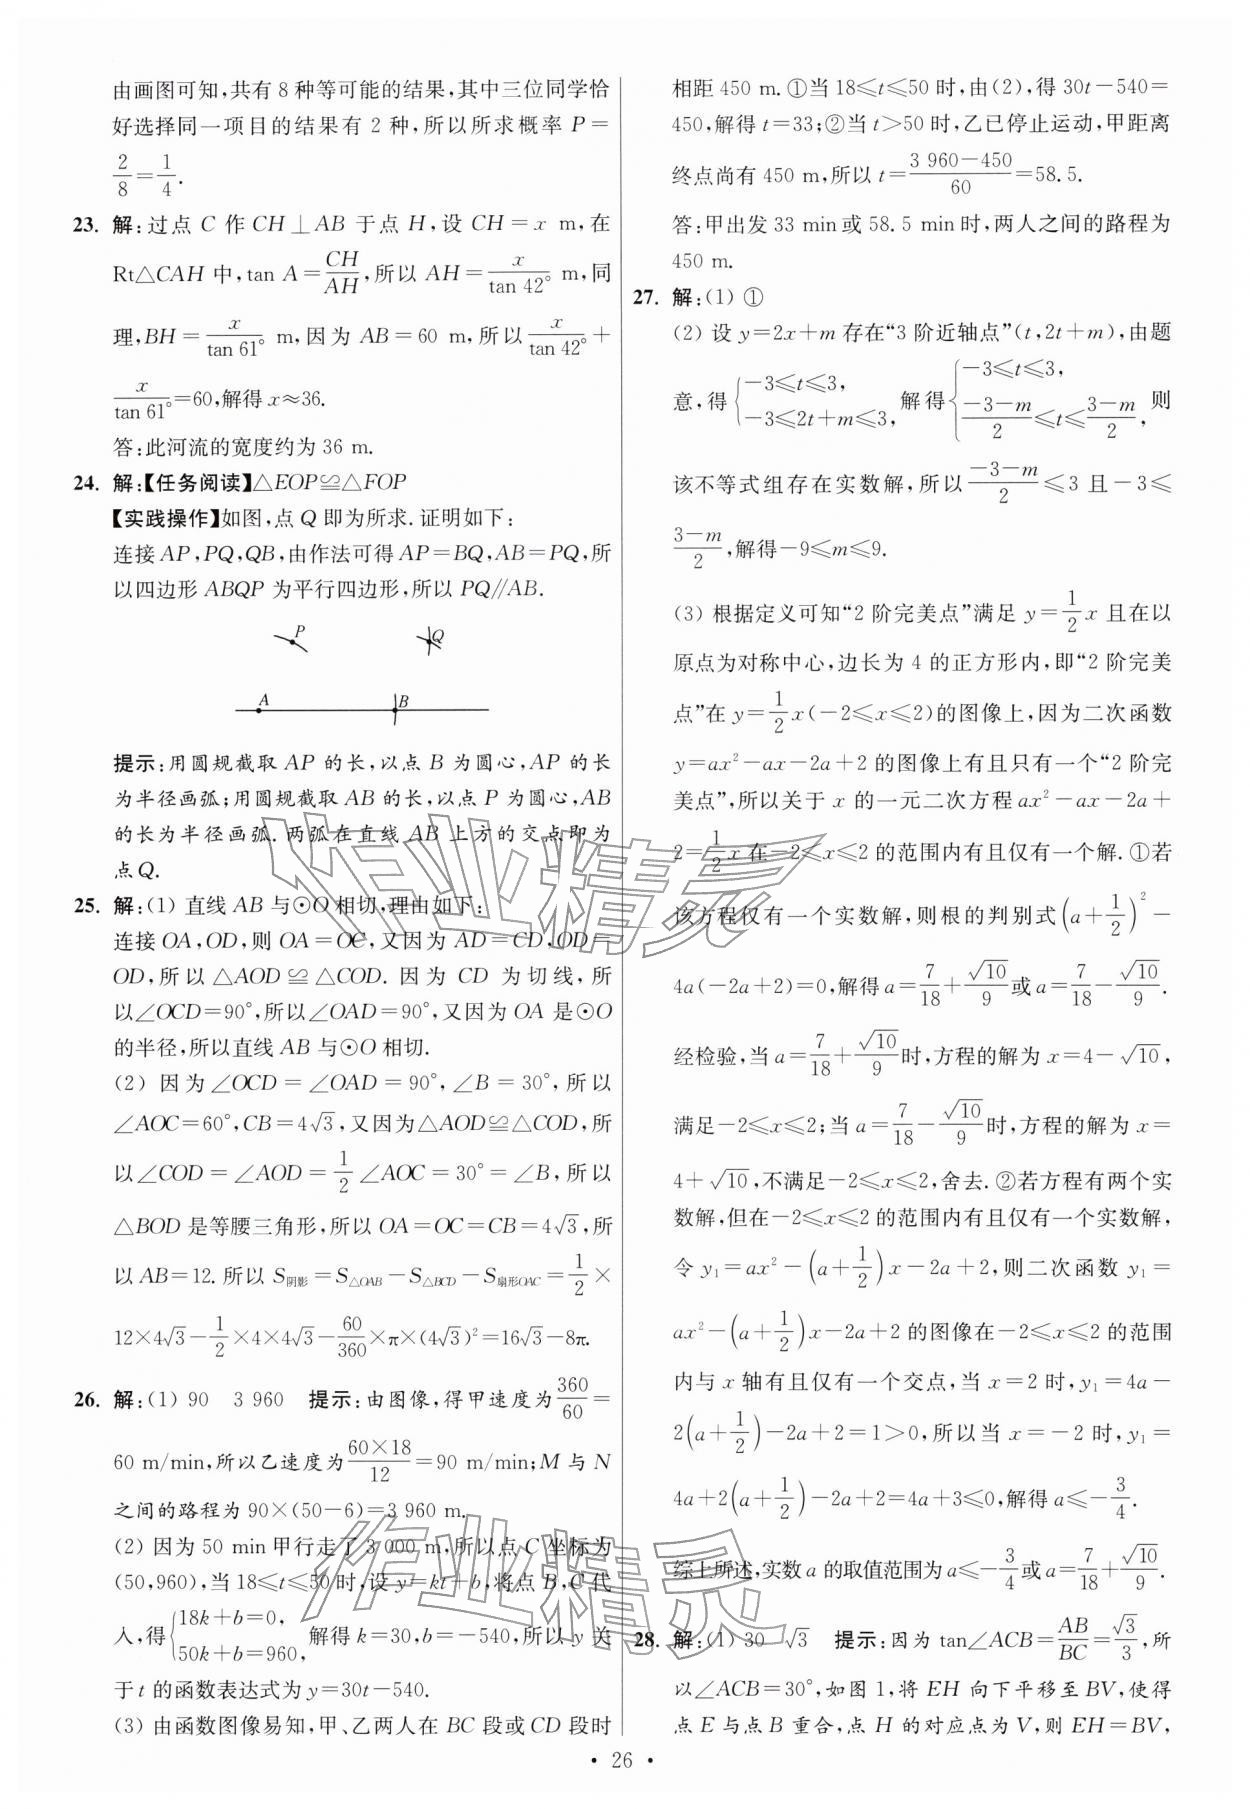 由画图可知,共有 8 种等可能的结果,其中三位同学恰
好选择同一项目的结果有 2 种,所以所求概率 P=
2/8=1/4.
23. 解:过点 C 作 CH⊥AB 于点 H,设 CH=x m,在
Rt△CAH 中,tan A=CH/AH,所以 AH=x/tan 42° m,同
理,BH=x/tan 61° m,因为 AB=60 m,所以 x/tan 42°+
x/tan 61°=60,解得 x≈36.
答:此河流的宽度约为 36 m.
24. 解:【任务阅读】△EOP≌△FOP
【实践操作】如图,点 Q 即为所求.证明如下:
连接 AP,PQ,QB,由作法可得 AP=BQ,AB=PQ,所
以四边形 ABQP 为平行四边形,所以 PQ∥AB.
P Q
A B
提示:用圆规截取 AP 的长,以点 B 为圆心,AP 的长
为半径画弧;用圆规截取 AB 的长,以点 P 为圆心,AB
的长为半径画弧.两弧在直线 AB 上方的交点即为
点 Q.
25. 解:(1) 直线 AB 与⊙O 相切,理由如下:
连接 OA,OD,则 OA=OC,又因为 AD=CD,OD=
OD,所以△AOD≌△COD.因为 CD 为切线,所
以∠OCD=90°,所以∠OAD=90°,又因为 OA 是⊙O
的半径,所以直线 AB 与⊙O 相切.
(2) 因为∠OCD=∠OAD=90°,∠B=30°,所以
∠AOC=60°,CB=4√3,又因为△AOD≌△COD,所
以∠COD=∠AOD=1/2∠AOC=30°=∠B,所以
△BOD 是等腰三角形,所以 OA=OC=CB=4√3,所
以 AB=12.所以 S阴影=S△OAB-S△BCD-S扇形OAC=1/2×
12×4√3-1/2×4×4√3-60/360×π×(4√3)²=16√3-8π.
26. 解:(1) 90 3 960 提示:由图像,得甲速度为360/60=
60 m/min,所以乙速度为(60×18)/12=90 m/min;M 与 N
之间的路程为 90×(50-6)=3 960 m.
(2) 因为 50 min 甲行走了 3 000 m,所以点 C 坐标为
(50,960),当 18≤t≤50 时,设 y=kt+b,将点 B,C 代
入,得{18k+b=0, 50k+b=960, 解得 k=30,b=-540,所以 y 关
于 t 的函数表达式为 y=30t-540.
(3) 由函数图像易知,甲、乙两人在 BC 段或 CD 段时
相距 450 m.①当 18≤t≤50 时,由(2),得 30t-540=
450,解得 t=33;②当 t>50 时,乙已停止运动,甲距离
终点尚有 450 m,所以 t=(3 960-450)/60=58.5.
答:甲出发 33 min 或 58.5 min 时,两人之间的路程为
450 m.
27. 解:(1) ①
(2) 设 y=2x+m 存在“3 阶近轴点”(t,2t+m),由题
意,得{-3≤t≤3, -3≤2t+m≤3, 解得{-3≤t≤3, (-3-m)/2≤t≤(3-m)/2, 则
该不等式组存在实数解,所以(-3-m)/2≤3 且-3≤
(3-m)/2,解得-9≤m≤9.
(3) 根据定义可知“2 阶完美点”满足 y=1/2x 且在以
原点为对称中心,边长为 4 的正方形内,即“2 阶完美
点”在 y=1/2x(-2≤x≤2)的图像上,因为二次函数
y=ax²-ax-2a+2 的图像上有且只有一个“2 阶完
美点”,所以关于 x 的一元二次方程 ax²-ax-2a+
2=1/2x 在-2≤x≤2 的范围内有且仅有一个解.①若
该方程仅有一个实数解,则根的判别式(a+1/2)²-
4a(-2a+2)=0,解得 a=7/18+√10/9或 a=7/18-√10/9.
经检验,当 a=7/18+√10/9时,方程的解为 x=4-√10,
满足-2≤x≤2;当 a=7/18-√10/9时,方程的解为 x=
4+√10,不满足-2≤x≤2,舍去.②若方程有两个实
数解,但在-2≤x≤2 的范围内有且仅有一个实数解,
令 y₁=ax²-(a+1/2)x-2a+2,则二次函数 y₁=
ax²-(a+1/2)x-2a+2 的图像在-2≤x≤2 的范围
内与 x 轴有且仅有一个交点,当 x=2 时,y₁=4a-
2(a+1/2)-2a+2=1>0,所以当 x=-2 时,y₁=
4a+2(a+1/2)-2a+2=4a+3≤0,解得 a≤-3/4.
综上所述,实数 a 的取值范围为 a≤-3/4或 a=7/18+√10/9.
28. 解:(1) 30 √3 提示:因为 tan∠ACB=AB/BC=√3/3,所
以∠ACB=30°,如图 1,将 EH 向下平移至 BV,使得
点 E 与点 B 重合,点 H 的对应点为 V,则 EH=BV,
• 26 •
作业精灵
作业精灵